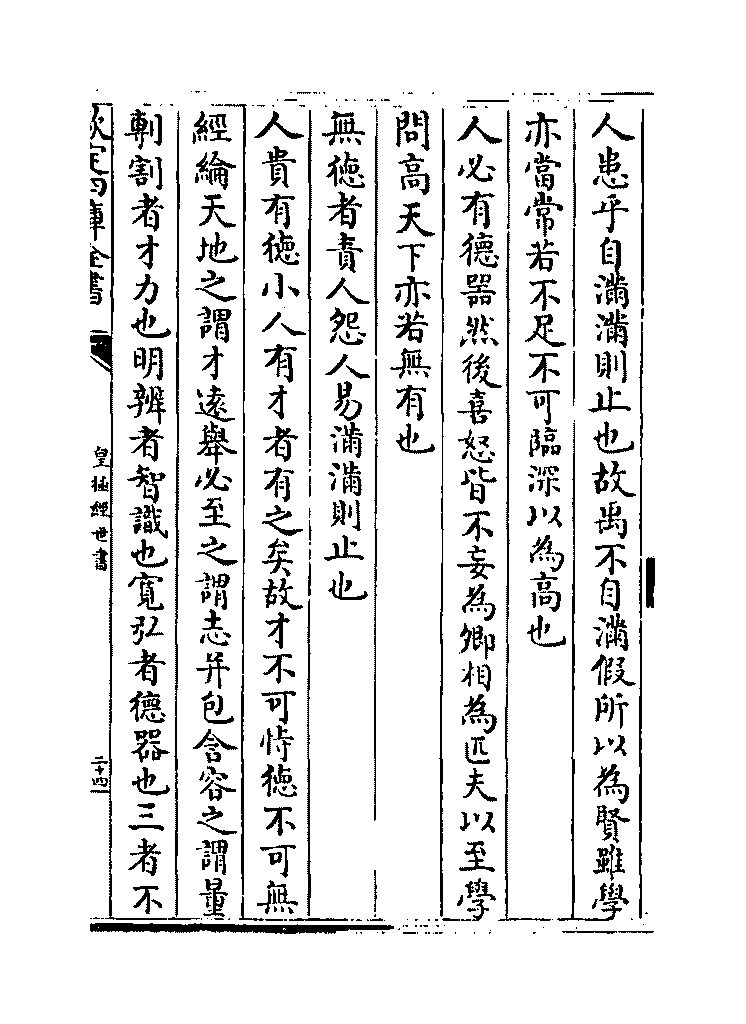 人患乎自滿滿則止也故禹不自滿假所以為賢雖學
亦當常若不足不可臨深以為高也
人必有德器然後喜怒皆不妄為卿相為匹夫以至學
問高天下亦若無有也
無德者責人怨人易滿滿則止也
人貴有德小人有才者有之矣故才不可恃德不可無
經綸天地之謂才遠舉必至之謂志并包含容之謂量
剸割者才力也明辨者智識也寬弘者德器也三者不
欽定四庫全書
皇極經世書
二十四